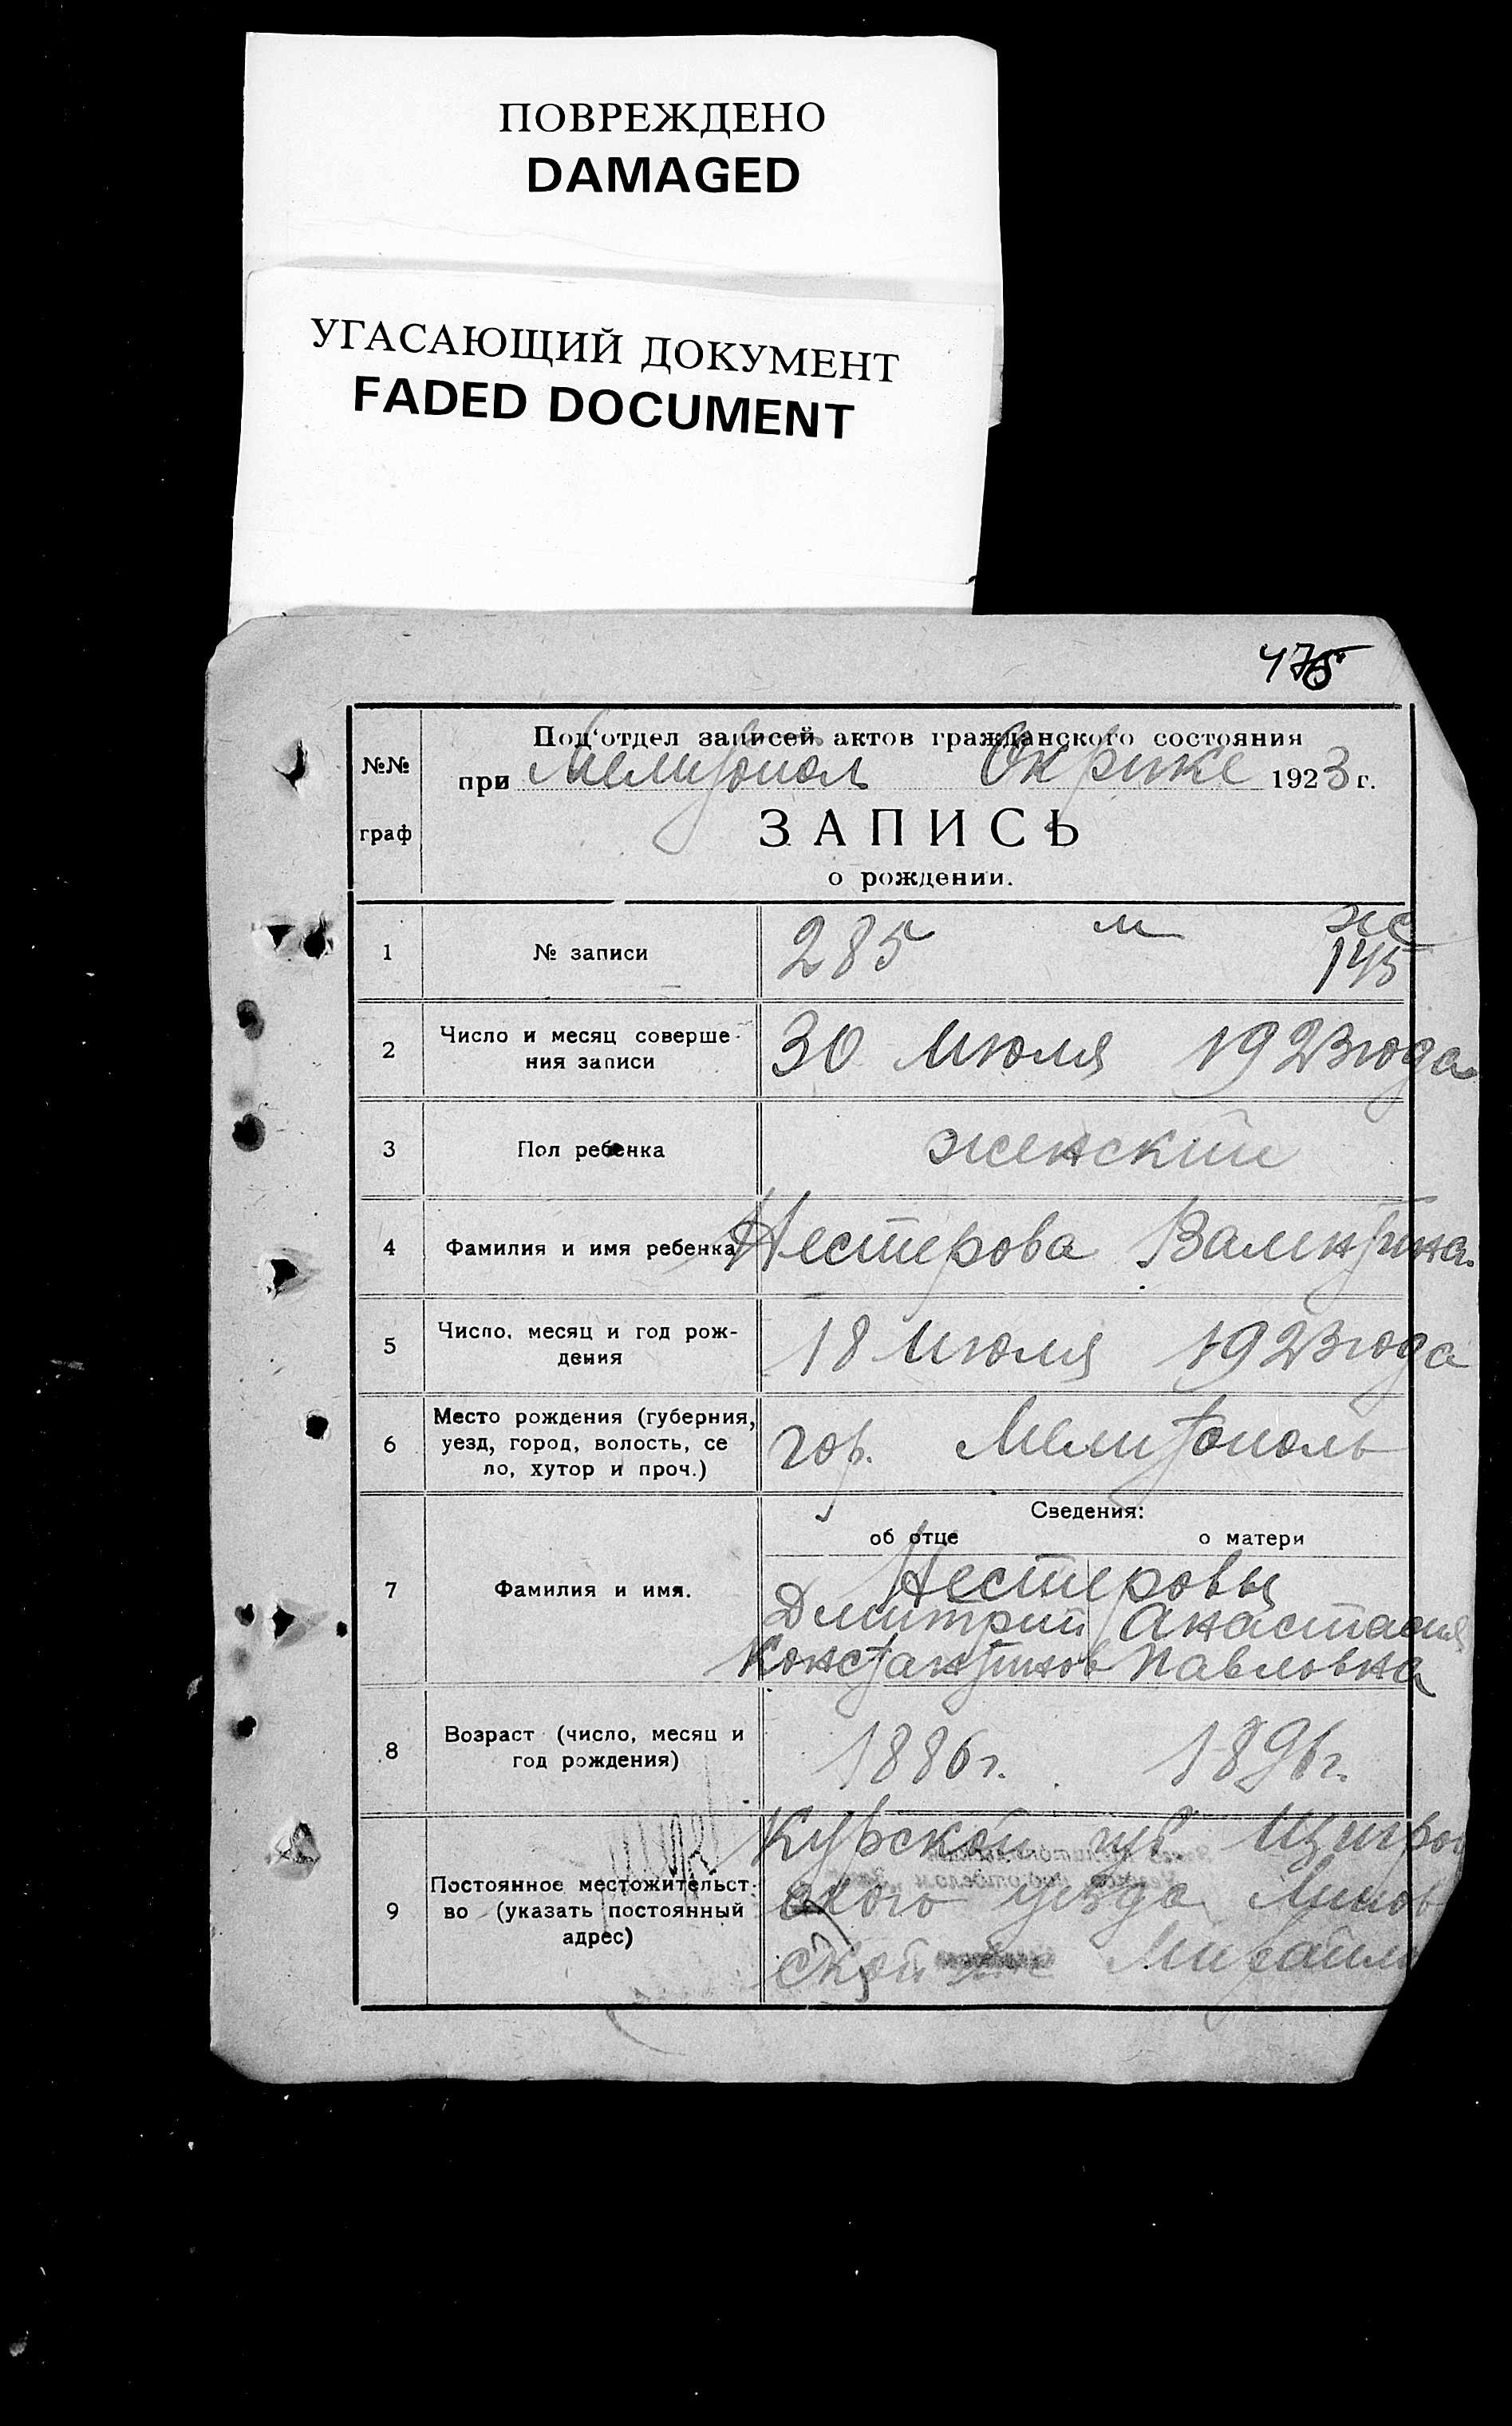 ПОВРЕЖДЕНО
DAMAGED
УГАСАЮЩИЙ ДОКУМЕНТ
FADED DOCUMENT
475
№№ граф
Под'отдел записей актов гражданского состояния
при Мелитопол Окрике 1923 г.
ЗАПИСЬ
о рождении.
1 № записи 285 м ж
145
2 Число и месяц соверше-
ния записи
30 Июля 1923 года
3 Пол ребенка женский
4 Фамилия и имя ребенка Нестерова Валентина.
5 Число, месяц и год рож-
дения
18 Июля 1923 года
6 Место рождения (губерния,
уезд, город, волость, се
ло, хутор и проч.)
гор. Мелитополь
Сведения:
об отце о матери
7 Фамилия и имя.
Нестеровы
Дмитрий Анастасия
Константинов Павловна
8 Возраст (число, месяц и
год рождения)
1886 г. 1896 г.
9 Постоянное местожительст-
во (указать постоянный
адрес)
Курской губ Щигров
ского уезда
ской Михайл